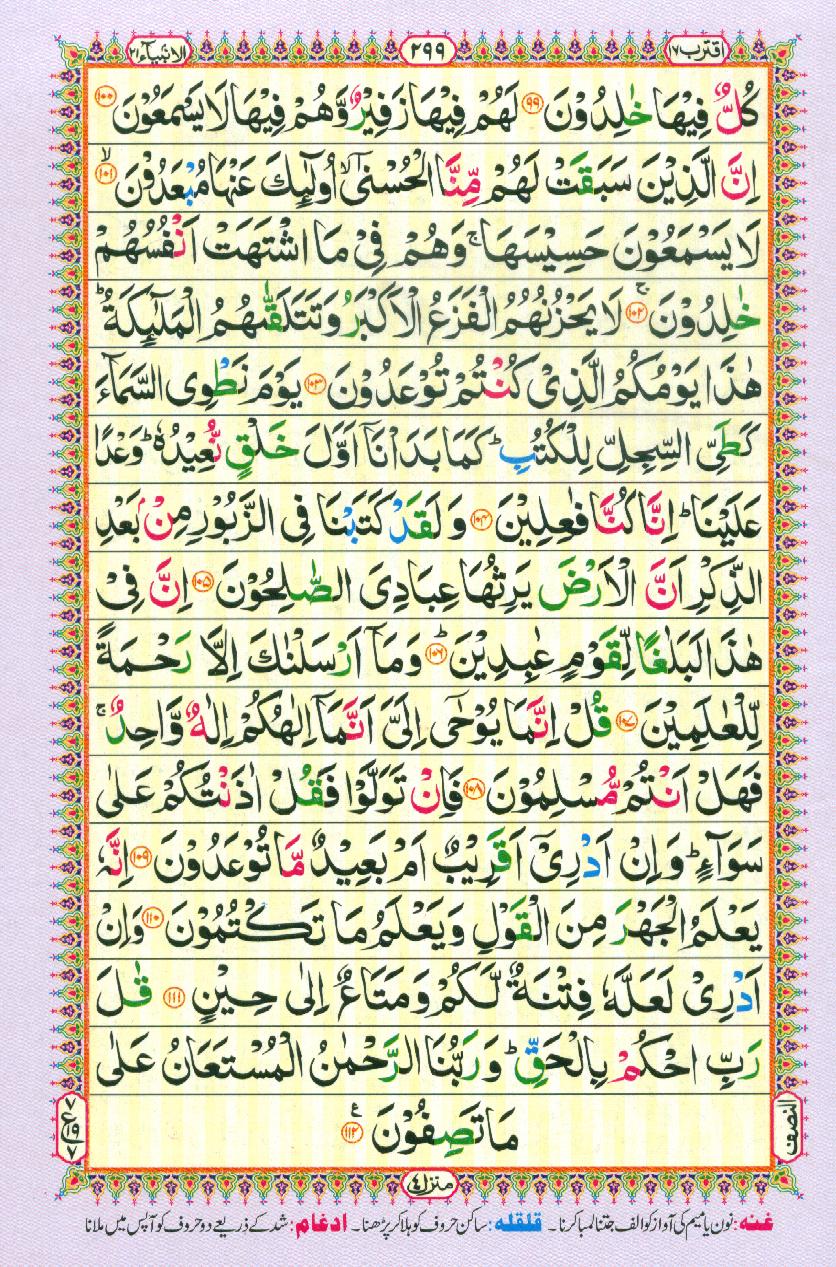 اقترب ۱۷
۲۹۹
الانبیآء ۲۱
كُلٌّ فِیْهَا خٰلِدُوْنَ ۹۹ لَهُمْ فِیْهَا زَفِیْرٌ وَّهُمْ فِیْهَا لَا یَسْمَعُوْنَ ۱۰۰
اِنَّ الَّذِیْنَ سَبَقَتْ لَهُمْ مِّنَّا الْحُسْنٰۤی ۙ اُولٰٓئِكَ عَنْهَا مُبْعَدُوْنَ ۙ ۱۰۱
لَا یَسْمَعُوْنَ حَسِیْسَهَا ۚ وَهُمْ فِیْ مَا اشْتَهَتْ اَنْفُسُهُمْ
خٰلِدُوْنَ ۚ ۱۰۲ لَا یَحْزُنُهُمُ الْفَزَعُ الْاَكْبَرُ وَتَتَلَقّٰىهُمُ الْمَلٰٓئِكَةُ ؕ
هٰذَا یَوْمُكُمُ الَّذِیْ كُنْتُمْ تُوْعَدُوْنَ ۱۰۳ یَوْمَ نَطْوِی السَّمَآءَ
كَطَیِّ السِّجِلِّ لِلْكُتُبِ ؕ كَمَا بَدَاْنَاۤ اَوَّلَ خَلْقٍ نُّعِیْدُهٗ ؕ وَعْدًا
عَلَیْنَا ؕ اِنَّا كُنَّا فٰعِلِیْنَ ۱۰۴ وَلَقَدْ كَتَبْنَا فِی الزَّبُوْرِ مِنْۢ بَعْدِ
الذِّكْرِ اَنَّ الْاَرْضَ یَرِثُهَا عِبَادِیَ الصّٰلِحُوْنَ ۱۰۵ اِنَّ فِیْ
هٰذَا لَبَلٰغًا لِّقَوْمٍ عٰبِدِیْنَ ؕ ۱۰۶ وَمَاۤ اَرْسَلْنٰكَ اِلَّا رَحْمَةً
لِّلْعٰلَمِیْنَ ۱۰۷ قُلْ اِنَّمَا یُوْحٰۤی اِلَیَّ اَنَّمَاۤ اِلٰهُكُمْ اِلٰهٌ وَّاحِدٌ ۚ
فَهَلْ اَنْتُمْ مُّسْلِمُوْنَ ۱۰۸ فَاِنْ تَوَلَّوْا فَقُلْ اٰذَنْتُكُمْ عَلٰی
سَوَآءٍ ؕ وَاِنْ اَدْرِیْۤ اَقَرِیْبٌ اَمْ بَعِیْدٌ مَّا تُوْعَدُوْنَ ۱۰۹ اِنَّهٗ
یَعْلَمُ الْجَهْرَ مِنَ الْقَوْلِ وَیَعْلَمُ مَا تَكْتُمُوْنَ ۱۱۰ وَاِنْ
اَدْرِیْ لَعَلَّهٗ فِتْنَةٌ لَّكُمْ وَمَتَاعٌ اِلٰی حِیْنٍ ۱۱۱ قٰلَ
رَبِّ احْكُمْ بِالْحَقِّ ؕ وَرَبُّنَا الرَّحْمٰنُ الْمُسْتَعَانُ عَلٰی
مَا تَصِفُوْنَ ۱۱۲ ع
النصف
۷ ع ۱۹ ۷
منزل ۴
غنه: نون یا میم کی آواز کو الف جتنا لمبا کرنا۔ قلقله: ساکن حروف کو ہلا کر پڑھنا۔ ادغام: شد کے ذریعے دو حروف کو آپس میں ملانا